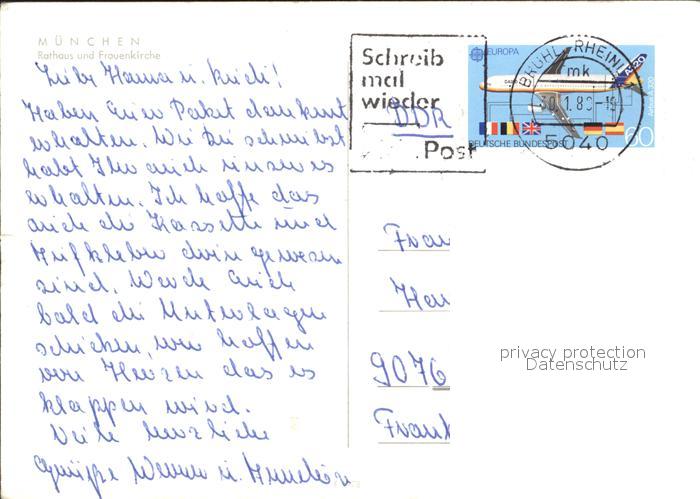 MÜNCHEN
Rathaus und Frauenkirche
Liebe Hanna u. Rudi!
Haben Euer Paket dankend
erhalten. Wie Du schreibst
habt Ihr auch unseres
erhalten. Ich hoffe das
auch die Kassette und
Aufkleber drin gewesen
sind. Werde Euch
bald die Unterlagen
schicken, wir hoffen
von Herzen das es
klappen wird.
Viele herzliche
Grüße u.
Schreib
mal
wieder
Post
DDR
EUROPA
BRÜHL, RHEINL
mk
5040
A320
Airbus A320
DEUTSCHE BUNDESPOST
60
Frau
9076
Frank
privacy protection
Datenschutz